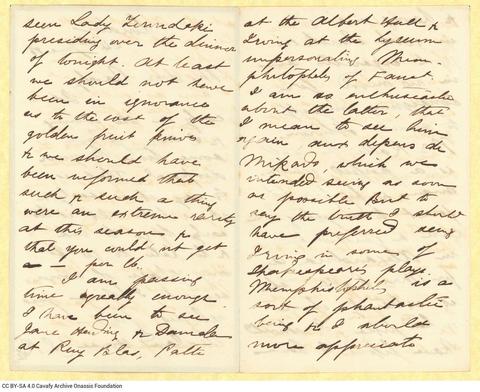 seen Lady Zerudaki
presiding over the dinner
of tonight. At least
we should not have
been in ignorance
as to the cost of the
golden fruit knives
& we should have
been informed that
such & such a thing
were an extreme rarity
at this season &
that you could not get
a — per lb.
I am passing
time agreably enough
I have been to see
Jane Hading & Damala
at Ruy Blas, Patti
at the Albert Hall &
Irving at the Lyceum
impersonating Mem-
philopheles of Faust.
I am so enthusiastic
about the latter, that
I mean to see him
again aux depens de
Mikado, which we
intended seing as soon
as possible But to
say the truth I should
have preferred seing
Irving in some of
Shakespeares plays.
Memphistopheles is a
sort of phantastic
being & I should
more appreciate
CC BY-SA 4.0 Cavafy Archive Onassis Foundation